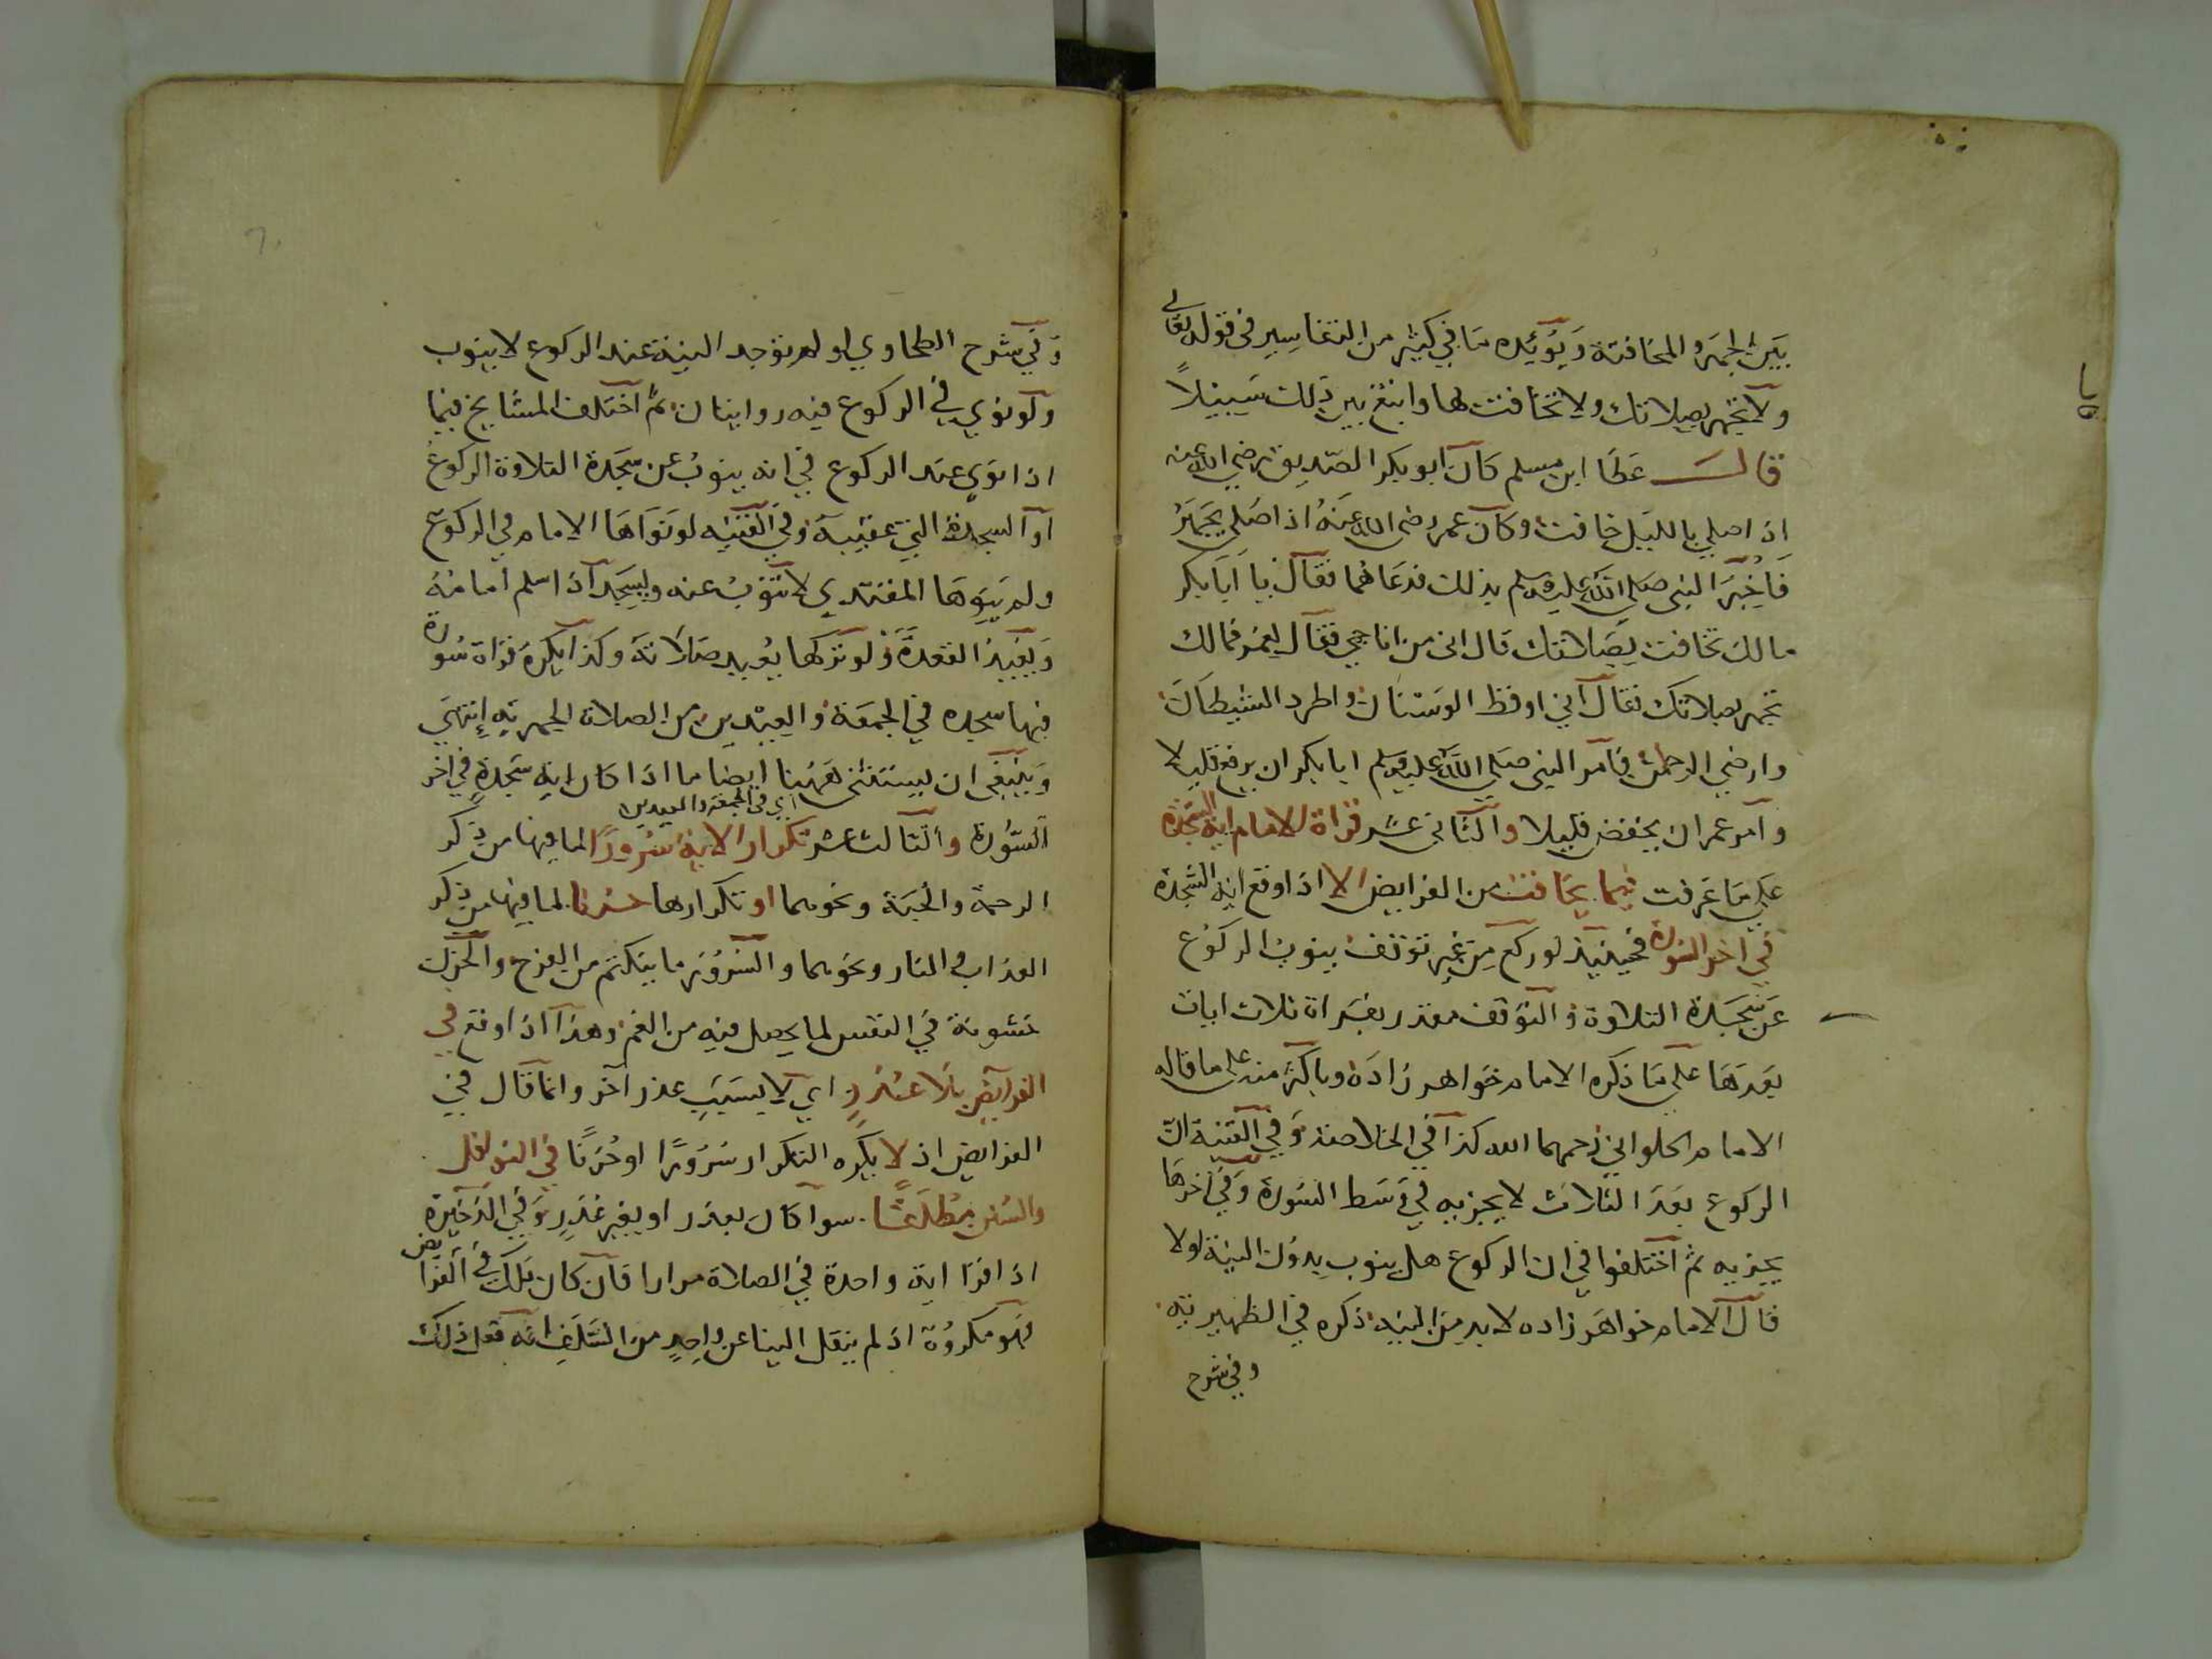 بين الجهر والمخافتة ويؤيده ما في كثير من التفاسير في قوله تعالى
ولا تجهر بصلاتك ولا تخافت بها وابتغ بين ذلك سبيلاً
قال عطا ابن مسلم كان ابو بكر الصديق رضي الله عنه
اذا صلي بالليل خافت وكان عمر رضى الله عنه اذا صلى يجهر
فاخبر النبي صلى الله عليه وسلم بذلك فدعاهما فقال يا ابا بكر
مالك تخافت بصلاتك قال اني من اناجي فقال لعمر فمالك
تجهر بصلاتك فقال اني اوقظ الوسنان واطرد الشيطان
وارضي الرحمن فامر النبي صلى الله عليه وسلم ابا بكر ان يرفع قليلا
وامر عمر ان يخفض قليلا والثاني عشر قراة الامام اية السجدة
على ما عرفت فيما يخافت من الفرايض الا اذا وقع اية السجدة
في اخر السورة فحينيذ لو ركع من غير توقف ينوب الركوع
عن سجدة التلاوة والتوقف مقدر بقراة ثلاث ايات
بعدها على ما ذكره الامام خواهر زاده وباكثر منه على ما قاله
الامام الحلواني رحمهما الله كذا في الخلاصة وفي القنية ان
الركوع بعد الثلاث لا يجزيه في وسط السورة وفي اخرها
يجزيه ثم اختلفوا في ان الركوع هل ينوب بدون النية اولا
قال الامام خواهر زاده لا بد من النية ذكره في الظهيرية
وفي شرح
وفي شرح الطحاوي لو لم توجد النية عند الركوع لا ينوب
ولو نوي في الركوع فيه روايتان ثم اختلف المشايخ فيما
اذا نوى عند الركوع في انه ينوب عن سجدة التلاوة الركوع
او السجدة التي عقيبه وفي القنية لو نواها الامام في الركوع
ولم ينوها المقتدي لا تنوب عنه ويسجد اذا سلم امامه
ويعيد القعدة ولو تركها يعيد صلاته وكذا يكره قراة سورة
فيها سجدة في الجمعة والعيدين من الصلاة الجهرية انتهى
وينبغي ان يستثنى ههنا ايضا ما اذا كان اية سجدة في اخر
اي في الجمعة والعيدين
السورة والثالث عشر تكرار الاية سرورًا لما فيها من ذكر
الرحمة والجنة ونحوهما او تكرارها حزنا لما فيها من ذكر
العذاب والنار ونحوهما والسرور ما يتكتم من الفرح والحزن
خشونة في النفس لما يحصل فيه من الغم وهذا اذا وقع في
الفرايض بلا عذر اي لا بسبب عذر آخر وانما قال في
الفرايض اذ لا يكره التكرار سرورًا او حزنًا في النوافل
والسنن مطلقًا سوا كان بعذر او بغير عذر وفي الذخيرة
اذا قرا اية واحدة في الصلاة مرارا فان كان ذلك في الفرايض
فهو مكروه اذ لم ينقل الينا عن واحد من السلف انه فعل ذلك